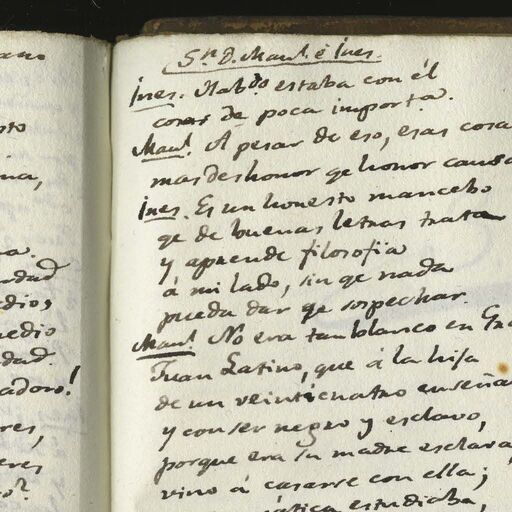 ano
sto
na,
a.
rdad
edios
nedio
dad.
adoro!
res,
eres
o?
Sn. D. Manl. é Ines.
Ines. Habdo estaba con él
cosas de poca importa.
Manl. A pesar de eso, esas cosa
mas deshonor qe honor causa
Ines. Es un honesto mancebo
qe de buenas letras trata
y aprende filosofia
á mi lado, sin qe nada
pueda dar qe sospechar.
Manl. No era tan blanco en Gra
Juan Latino, que á la hija
de un veinticuatro enseña
y con ser negro y esclavo,
porque era su madre esclava
vino á casarse con ella;
ática estudiaba,